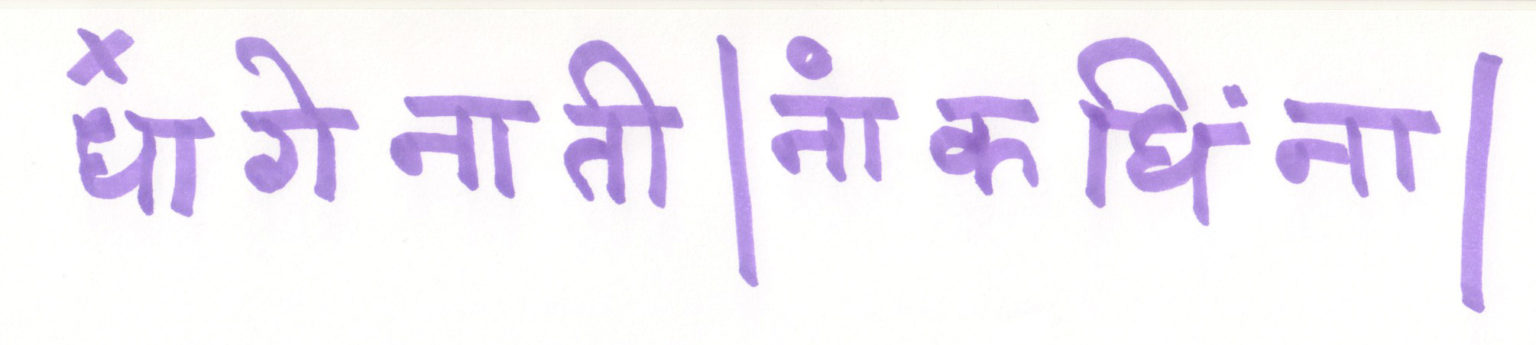 × ०
धा गे ना ती | ना क धिं ना |